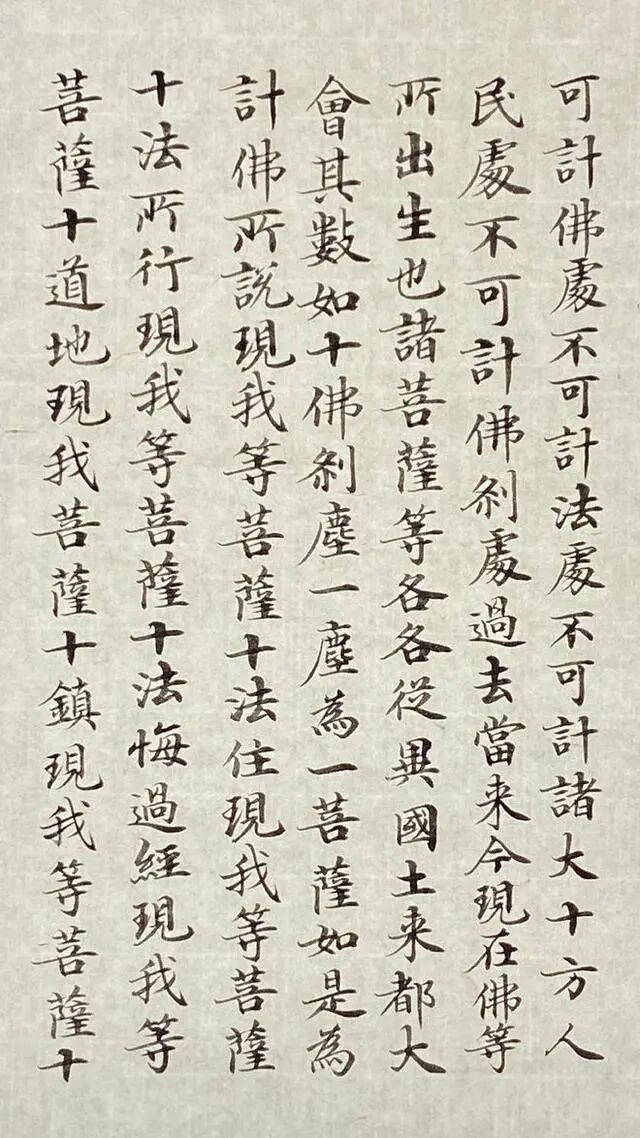 可計佛處不可計法處不可計諸大十方人
民處不可計佛剎處過去當来今現在佛等
所出生也諸菩薩等各各從異國土来都大
會其數如十佛剎塵一塵為一菩薩如是為
計佛所說現我等菩薩十法住現我等菩薩
十法所行現我等菩薩十法悔過經現我等
菩薩十道地現我菩薩十鎮現我等菩薩十